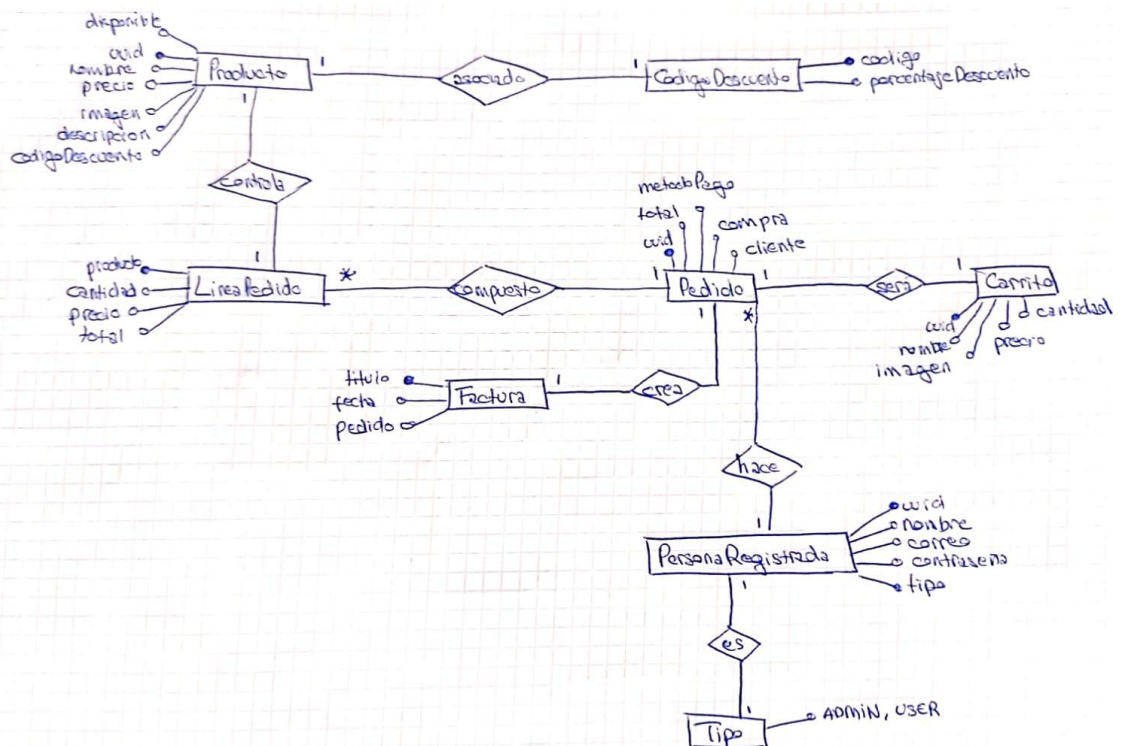 disponible
uuid
nombre
precio
imagen
descripcion
codigoDescuento
Producto
1
asociado
1
CodigoDescuento
codigo
porcentajeDescuento
1
controla
1
producto
cantidad
precio
total
LineaPedido
*
compuesto
1
metodoPago
total
compra
uuid
cliente
Pedido
1
sera
1
Carrito
uuid
nombre
imagen
precio
cantidad
1
*
titulo
fecha
pedido
Factura
1
crea
hace
1
PersonaRegistrada
uuid
nombre
correo
contraseña
tipo
1
es
1
Tipo
ADMIN, USER